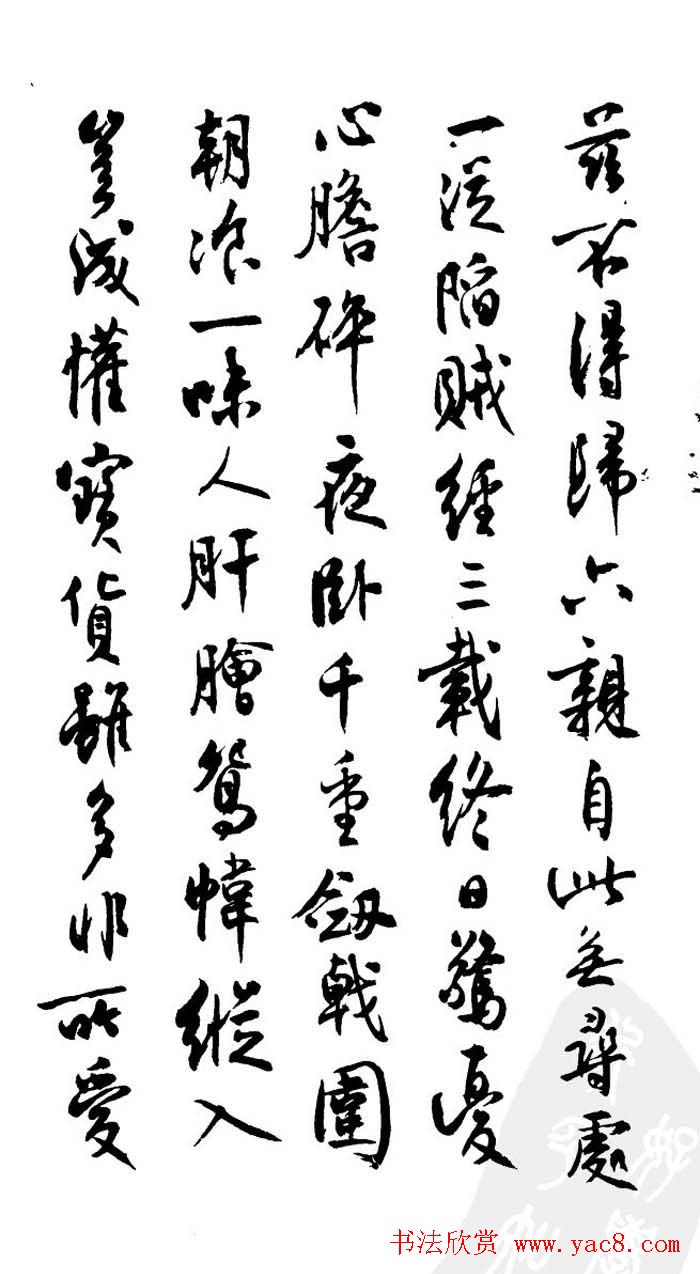 茲不得歸六親自此無尋處
一從陷賊經三載終日驚憂
心膽碎夜卧千重劒戟圍
朝飡一味人肝膾鴛幃縱入
豈成懽寶貨雖多非所愛
书法欣赏 www.yac8.com